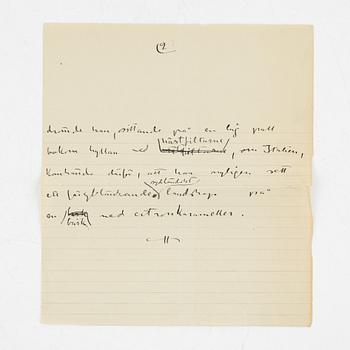 (2)
drömde han, sittande på en låg pall
hästfiltarna
bakom hyllan med hästfiltarna, om Italien,
kanhända därför, att han nyligen sett
sydländskt
ett färgbländande landskap på
en burk med citronkarameller.
burk